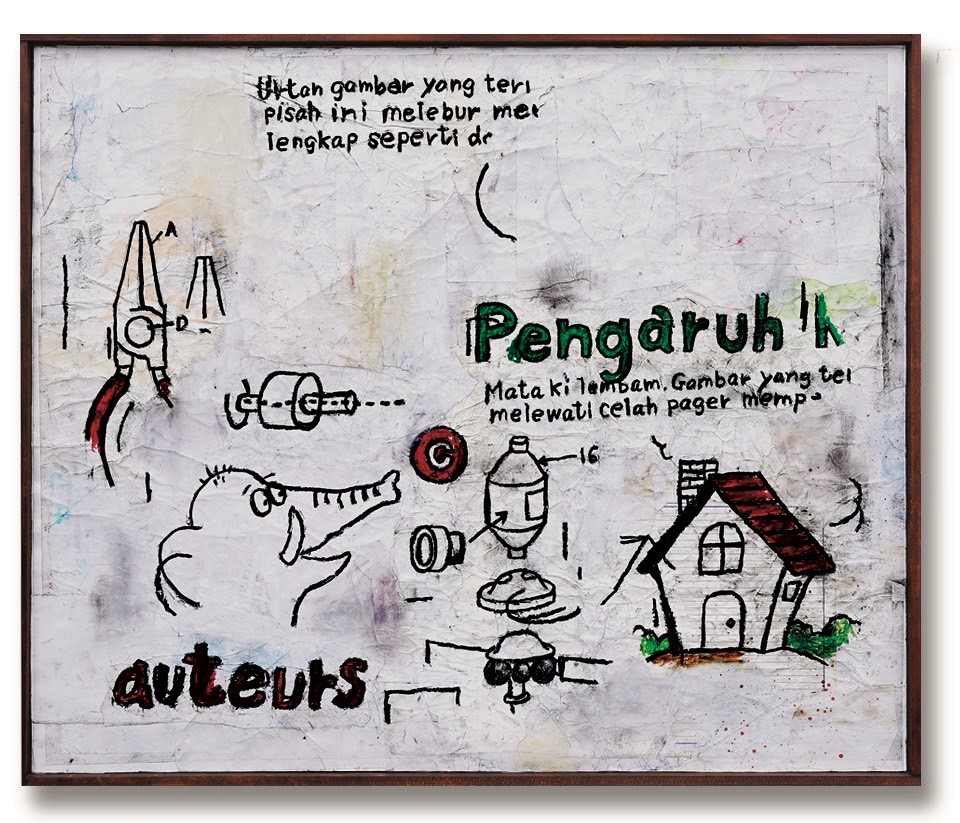 Urtan gambar yang teri
pisah ini melebur mer
lengkap seperti de
A
D
Pengaruh 'k
Mata ki lembam. Gambar yang tei
melewati celah pager memp-
C
16
auteurs